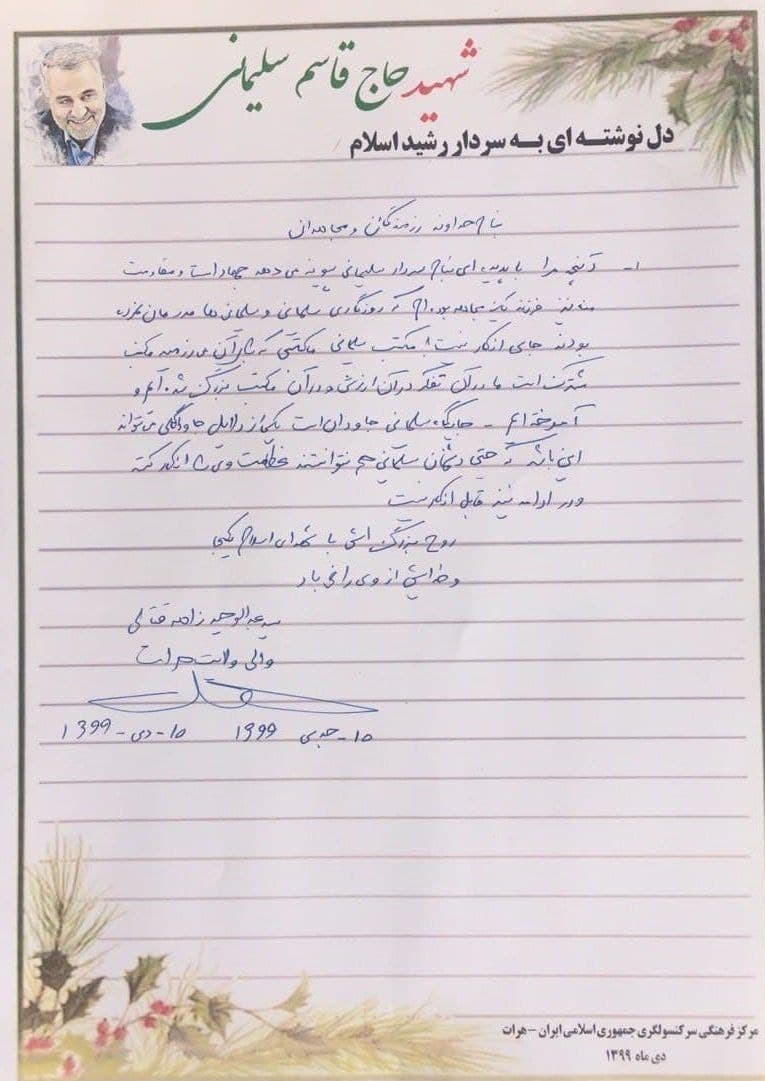 شهید حاج قاسم سلیمانی
دل نوشته ای به سردار رشید اسلام
بنام خداوند رزمندگان و مجاهدان
۱- آنچه مرا با پدیده ای بنام سردار سلیمانی پیوند می دهد جهاد است و مقاومت
منهم نیز فرزند یک مجاهد بوده ام که روزگاری سلیمانی و سلیمانی ها
بودند جای انکار نیست مکتب سلیمانی مکتبی که آن می رزمید مکتب
مشترک است ما در آن تفکر در آن ارزش و در آن مکتب بزرگ شده ایم و
آموخته ایم - جایگاه سلیمانی جاودان است یکی از دلایل جاودانگی می تواند
این باشد که حتی دشمنان سلیمانی هم نتوانستند عظمت وی را انکار کنند
و در ادامه نیز قابل انکار نیست
روح بزرگ اش با شهدای اسلام یکجا
و خدایش از وی راضی باد
سید عبدالوحید زاده قتالی
والی ولایت هرات
۱۵- جدی ۱۳۹۹ ۱۵- دی - ۱۳۹۹
مرکز فرهنگی سرکنسولگری جمهوری اسلامی ایران - هرات
دی ماه ۱۳۹۹